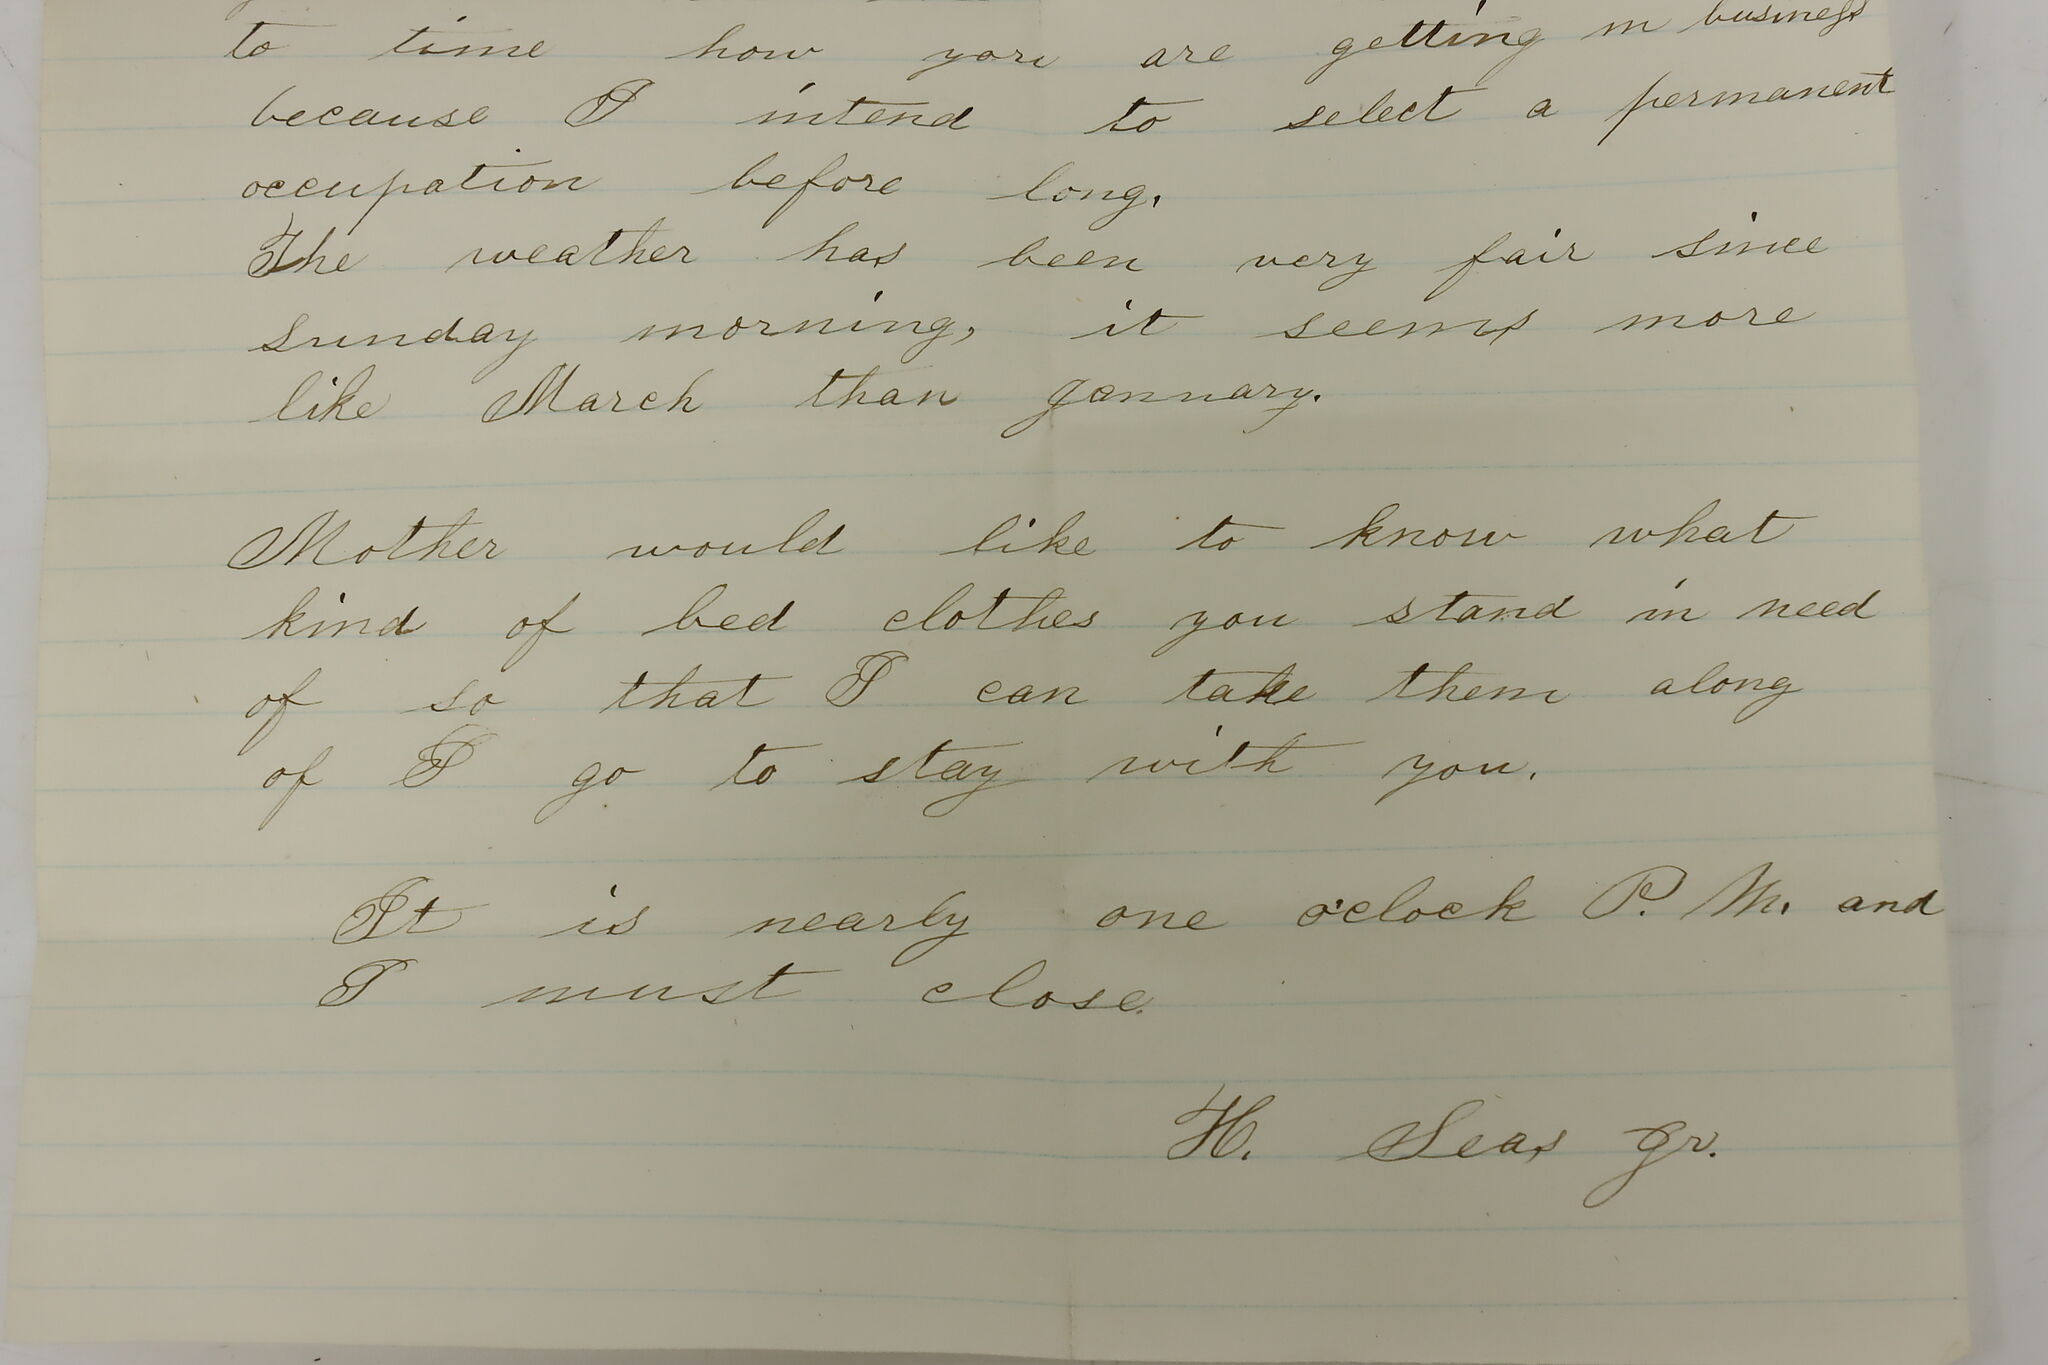 to time how you are getting in business
because I intend to select a permanent
occupation before long.
The weather has been very fair since
sunday morning, it seems more
like March than January.
Mother would like to know what
kind of bed clothes you stand in need
of so that I can take them along
of I go to stay with you.
It is nearly one o'clock P. M. and
I must close.
H. Seas Jr.